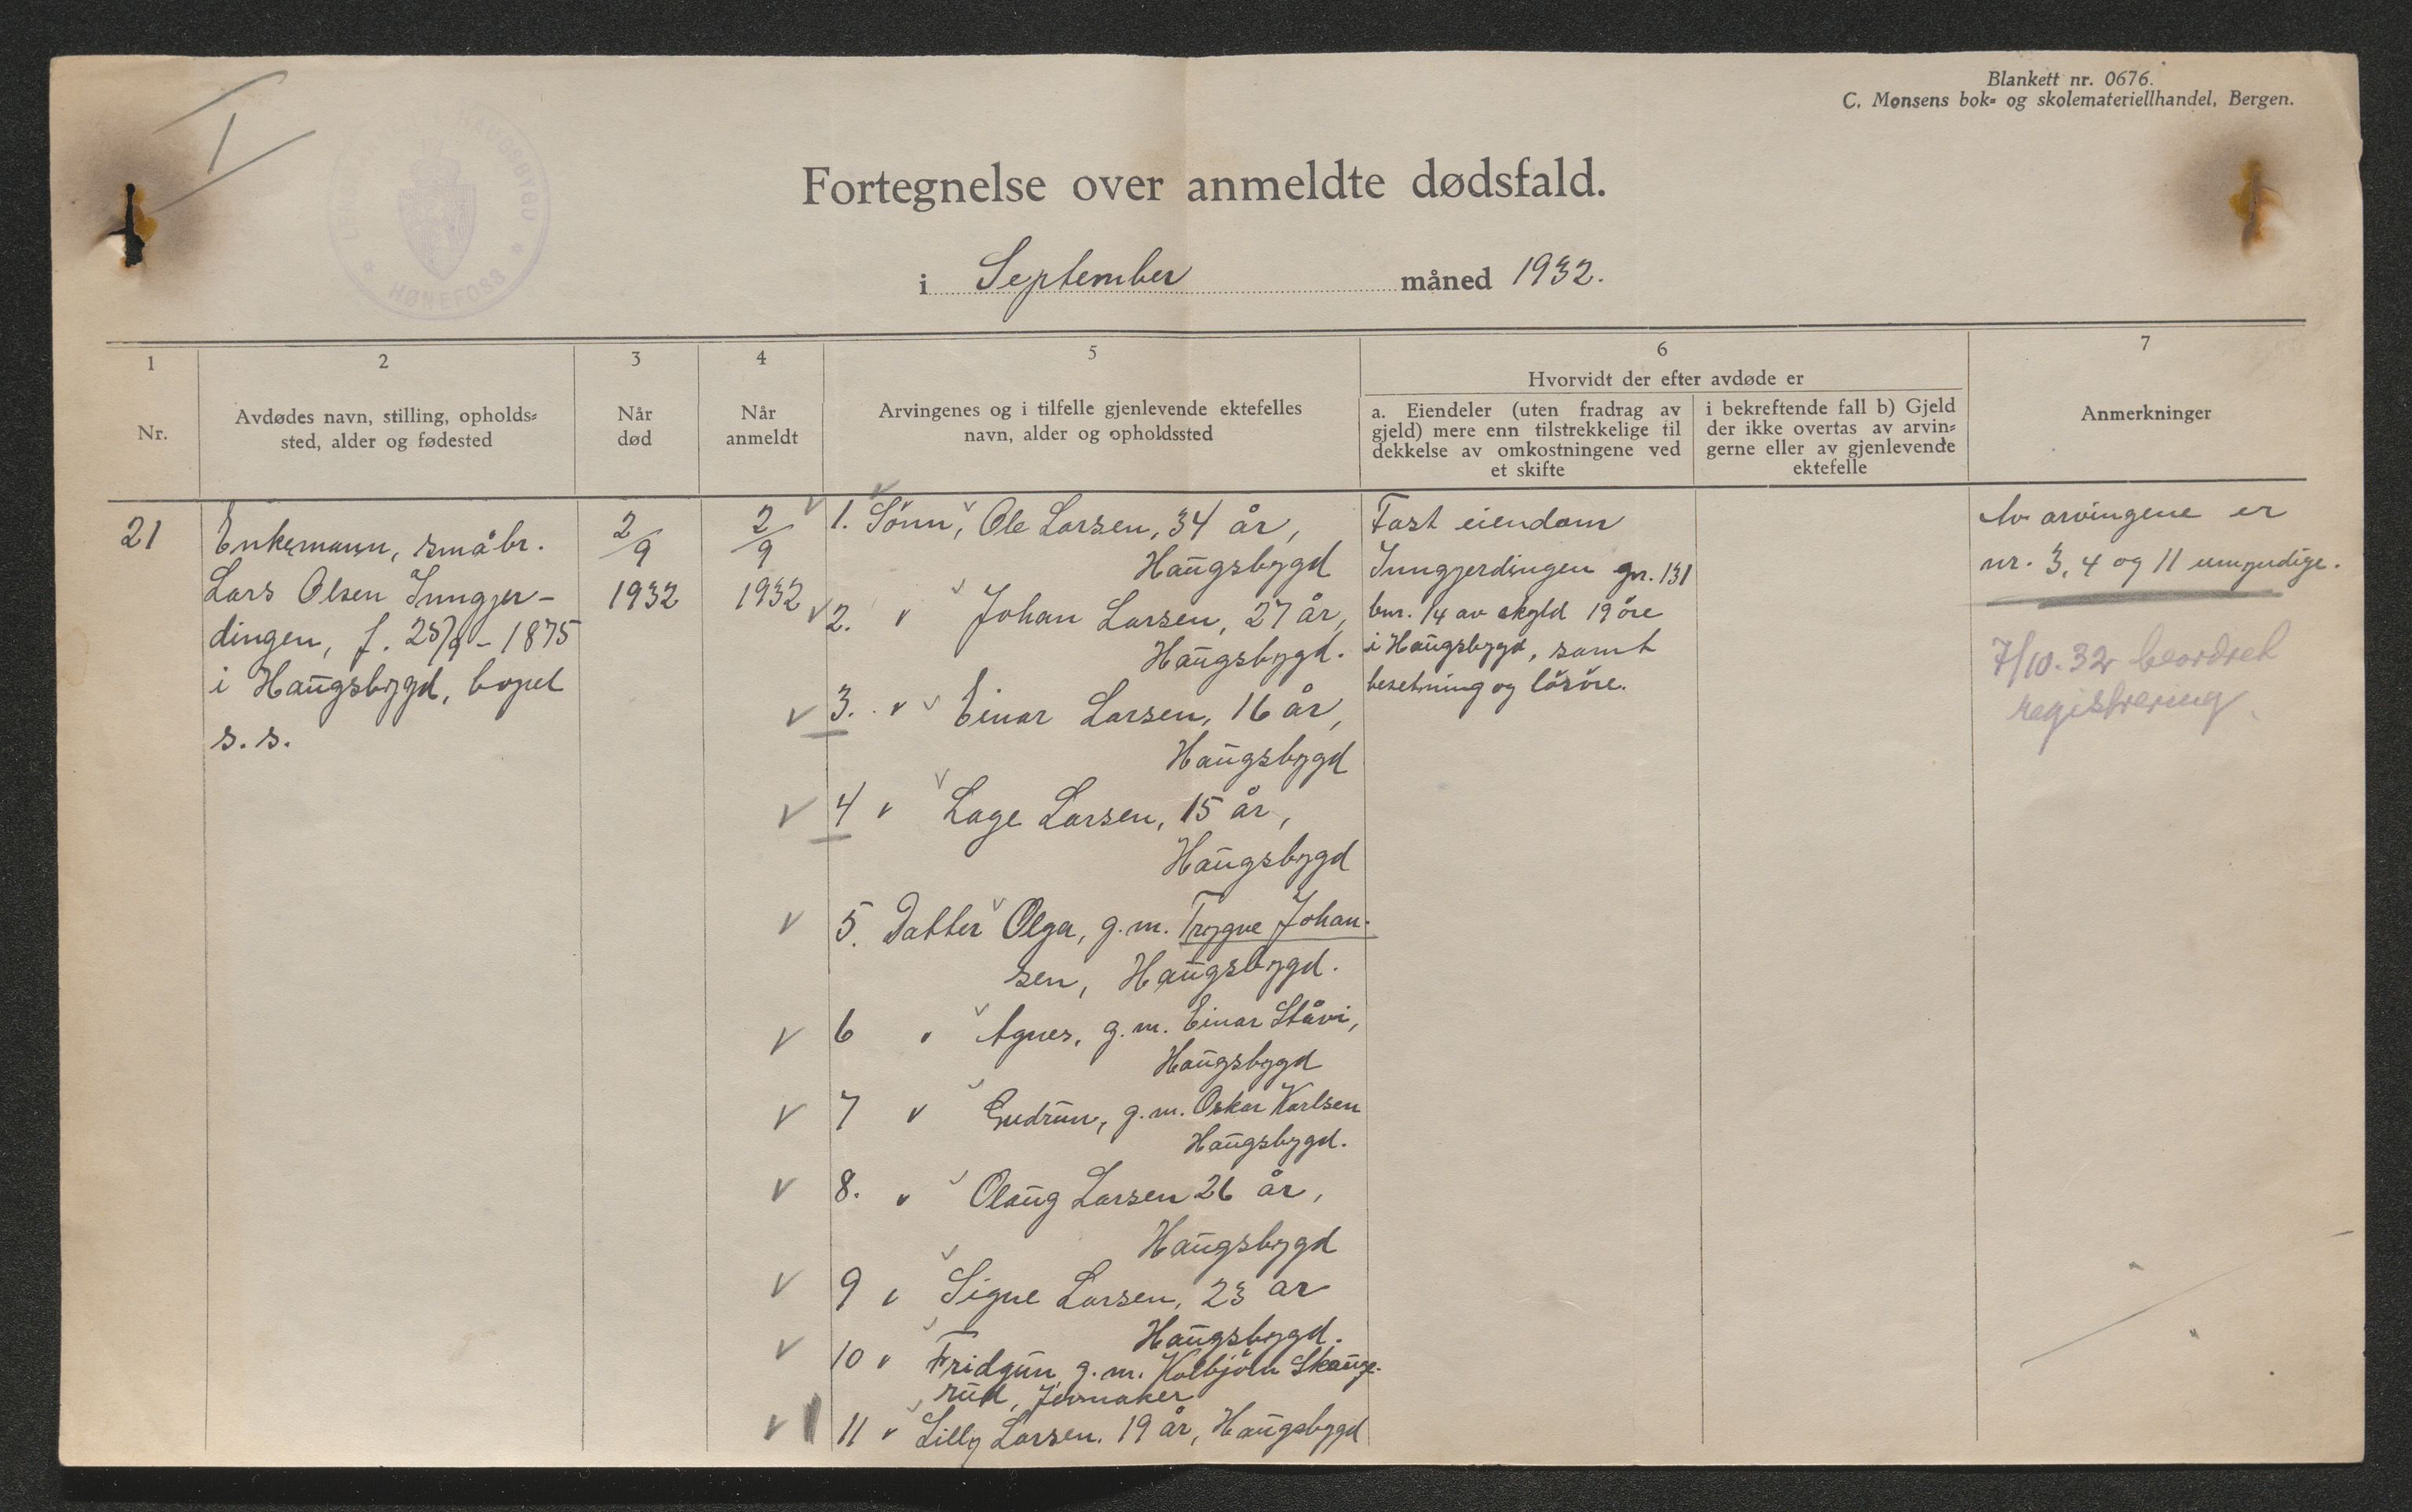 Blankett nr. 0676.
C. Monsens bok- og skolemateriellhandel, Bergen.
I
HAUGSBYGD
HØNEFOSS
Fortegnelse over anmeldte dødsfald.
i September måned 1932.
1
Nr.
2
Avdødes navn, stilling, opholds-
sted, alder og fødested
3
Når
død
4
Når
anmeldt
5
Arvingenes og i tilfelle gjenlevende ektefelles
navn, alder og opholdssted
6
Hvorvidt der efter avdøde er
a. Eiendeler (uten fradrag av
gjeld) mere enn tilstrekkelige til
dekkelse av omkostningene ved
et skifte
i bekreftende fall b) Gjeld
der ikke overtas av arvin-
gerne eller av gjenlevende
ektefelle
7
Anmerkninger
21
Enkemann, småbr.
Lars Olsen Inngjer-
dingen, f. 25/9 - 1875
i Haugsbygd, bopel
s. s.
2/9
1932
2/9
1932
1. Sönn, Ole Larsen, 34 år,
Haugsbygd
2. " Johan Larsen, 27 år,
Haugsbygd.
3. " Einar Larsen, 16 år,
Haugsbygd
4 " Lage Larsen, 15 år,
Haugsbygd
5. Datter Olga, g. m. Trygve Johan-
sen, Haugsbygd.
6 " Agnes, g. m. Einar Ståvi,
Haugsbygd
7 " Gudrun, g. m. Oskar Karlsen
Haugsbygd.
8. " Olaug Larsen 26 år,
Haugsbygd
9 " Signe Larsen, 23 år
Haugsbygd.
10 " Fridgun, g. m. Kolbjörn Skauge-
rud, Jevnaker
11 " Lilly Larsen. 19 år, Haugsbygd
Fast eiendom
Inngjerdingen gnr. 131
bnr. 14 av skyld 19 öre
i Haugsbygd, samt
besetning og lösöre.
Av arvingene er
nr. 3, 4 og 11 umyndige.
7/10. 32 beordret
registrering.